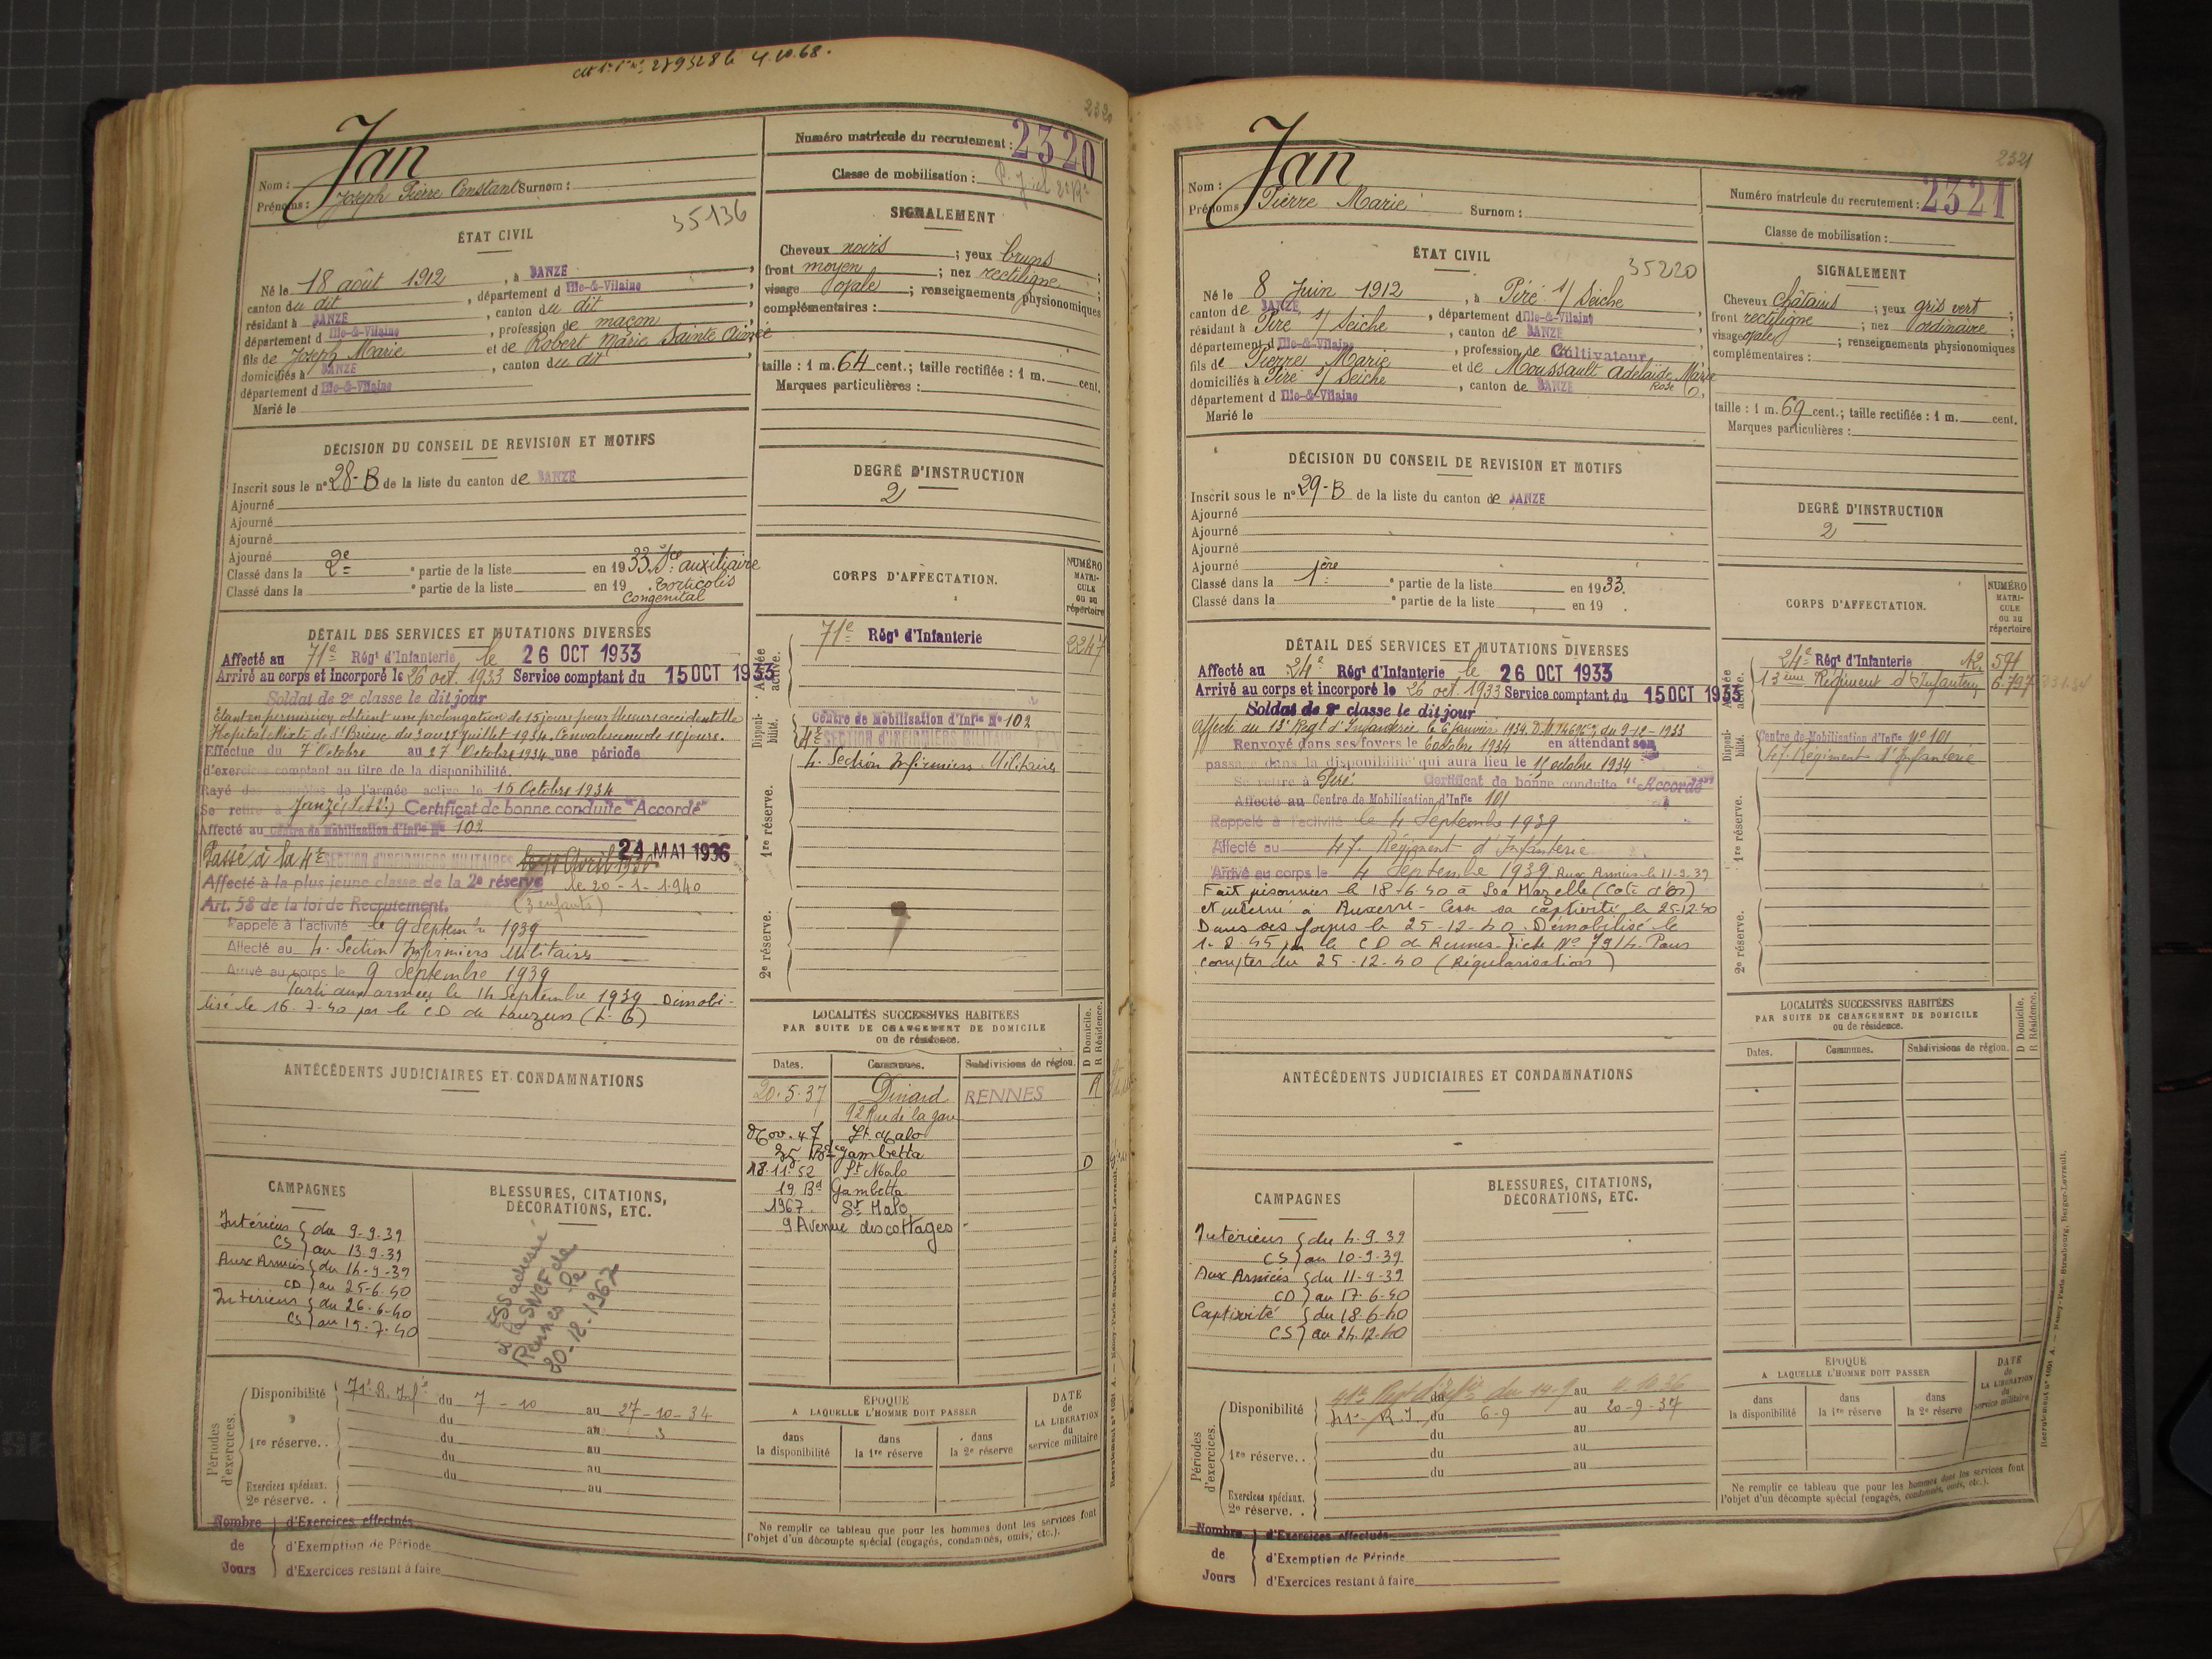 4.10.68.
2320
Jan
Nom :
Prénoms : Joseph Pierre Constant Surnom :
35136
ÉTAT CIVIL
Né le 18 août 1912, à JANZÉ
canton du dit, département d Ille-&-Vilaine
résidant à JANZÉ, canton du dit
département d Ille-&-Vilaine, profession de maçon
fils de Joseph Marie et de Robert Marie Sainte Aimée
domiciliés à JANZÉ, canton du dit
département d Ille-&-Vilaine
Marié le
DÉCISION DU CONSEIL DE REVISION ET MOTIFS
Inscrit sous le n° 28-B de la liste du canton de JANZÉ
Ajourné
Ajourné
Ajourné
Ajourné
Classé dans la 2e partie de la liste en 1933. auxiliaire
Classé dans la e partie de la liste en 19 . Torticolis
Congenital
DÉTAIL DES SERVICES ET MUTATIONS DIVERSES
Affecté au 71e Régt d'Infanterie le 26 OCT 1933
Arrivé au corps et incorporé le 26 oct. 1933 Service comptant du 15 OCT 1933
Soldat de 2e classe le dit jour
Etant en permission obtient une prolongation de 15 jours pour blessure accidentelle
Hopital Mixte de St Brieuc du 3 au 25 juillet 1934. Convalescence de 10 jours.
Effectue du 7 Octobre au 27 Octobre 1934 une période
d'exercices comptant au titre de la disponibilité.
Rayé des contrôles de l'armée active le 15 Octobre 1934
Se retire à Janzé (I et V) Certificat de bonne conduite "Accordé"
Affecté au Centre de Mobilisation d'Infie N° 102
Passé à la 4e SECTION D'INFIRMIERS MILITAIRES 24 MAI 1936
Affecté à la plus jeune classe de la 2e réserve le 20-1-1940
Art. 58 de la loi de Recrutement. (3 enfants)
Rappelé à l'activité le 9 Septembre 1939
Affecté au 4. Section Infirmiers Militaires
Arrivé au corps le 9 Septembre 1939
Parti aux armées le 14 Septembre 1939 Démobi-
lisé le 16-7-40 par le CD de Lauzun (L.G)
ANTÉCÉDENTS JUDICIAIRES ET CONDAMNATIONS
CAMPAGNES
Intérieur { du 9-9-39
CS } au 13-9-39
Aux Armées { du 14-9-39
CD } au 25-6-40
Intérieur { du 26-6-40
CS } au 15-7-40
BLESSURES, CITATIONS,
DÉCORATIONS, ETC.
ESS adressé
à la SNCF de
Rennes
Périodes d'exercices.
Disponibilité 71e R. Infie du 7-10 au 27-10-34
du au
1re réserve. . du au
du au
du au
Exercices spéciaux.
2e réserve. .
Nombre de Jours
d'Exercices effectués
d'Exemption de Période
d'Exercices restant à faire
Numéro matricule du recrutement : 2320
Classe de mobilisation :
SIGNALEMENT
Cheveux noirs ; yeux bruns
front moyen ; nez rectiligne
visage ovale ; renseignements physionomiques
complémentaires :
taille : 1 m. 64 cent.; taille rectifiée : 1 m. cent.
Marques particulières :
DEGRÉ D'INSTRUCTION
2
CORPS D'AFFECTATION.
NUMÉRO MATRICULE ou au répertoire
Armée active.
71e Régt d'Infanterie 2247
Disponibilité.
Centre de Mobilisation d'Infie N° 102
4e SECTION D'INFIRMIERS MILITAIRES
1re réserve.
4. Section Infirmiers Militaires
2e réserve.
LOCALITÉS SUCCESSIVES HABITÉES
PAR SUITE DE CHANGEMENT DE DOMICILE
ou de résidence.
D Domicile.
R Résidence.
Dates. Communes. Subdivisions de région.
20-5-37 Dinard RENNES R
92 Rue de la gare
Nov. 47 St Malo
35 Bd Gambetta
18-11-52 St Malo D
19 Bd Gambetta
1967. St Malo
9 Avenue des cottages
ÉPOQUE
A LAQUELLE L'HOMME DOIT PASSER
dans la disponibilité
dans la 1re réserve
dans la 2e réserve
DATE de LA LIBÉRATION du service militaire
Ne remplir ce tableau que pour les hommes dont les services font
l'objet d'un décompte spécial (engagés, condamnés, omis, etc.).
2321
Jan
Nom :
Prénoms : Pierre Marie Surnom :
35220
ÉTAT CIVIL
Né le 8 Juin 1912, à Piré s/ Seiche
canton de JANZÉ, département d Ille-&-Vilaine
résidant à Piré s/ Seiche, canton de JANZÉ
département d Ille-&-Vilaine, profession de Cultivateur
fils de Pierre Marie et de Moussault Adelaïde Marie
Rose
domiciliés à Piré s/ Seiche, canton de JANZÉ
département d Ille-&-Vilaine
Marié le
DÉCISION DU CONSEIL DE REVISION ET MOTIFS
Inscrit sous le n° 29-B de la liste du canton de JANZÉ
Ajourné
Ajourné
Ajourné
Ajourné
Classé dans la 1ère partie de la liste en 1933.
Classé dans la e partie de la liste en 19 .
DÉTAIL DES SERVICES ET MUTATIONS DIVERSES
Affecté au 24e Régt d'Infanterie le 26 OCT 1933
Arrivé au corps et incorporé le 26 oct. 1933 Service comptant du 15 OCT 1933
Soldat de 2e classe le dit jour
Affecté au 13e Regt d'Infanterie le 6 Janvier 1934. du 9-12-1933
Renvoyé dans ses foyers le 6 octobre 1934 en attendant son
passage dans la disponibilité qui aura lieu le 15 octobre 1934
Se retire à Piré Certificat de bonne conduite "Accordé"
Affecté au Centre de Mobilisation d'Infie 101
Rappelé à l'activité le 4 Septembre 1939
Affecté au 47. Régiment d'Infanterie
Arrivé au corps le 4 Septembre 1939 Aux Armées le 11-9-39
Fait prisonnier le 18-6-40 à (Cote d'Or)
et interné à Auxerre - Cesse sa captivité le 25-12-40
Dans ses foyers le 25-12-40. Démobilisé le
1-8-45 par le CD de Rennes. Fiche No 7914. Pour
compter du 25-12-40 (Régularisation)
ANTÉCÉDENTS JUDICIAIRES ET CONDAMNATIONS
CAMPAGNES
Intérieur { du 4-9-39
CS } au 10-9-39
Aux Armées { du 11-9-39
CD } au 17-6-40
Captivité { du 18-6-40
CS } au 24-12-40
BLESSURES, CITATIONS,
DÉCORATIONS, ETC.
Périodes d'exercices.
Disponibilité 41e du 14-9 au
41e R.I. du 6-9 au 20-9-37
1re réserve. . du au
du au
du au
Exercices spéciaux.
2e réserve. .
Nombre de Jours
d'Exercices effectués
d'Exemption de Période
d'Exercices restant à faire
Numéro matricule du recrutement : 2321
Classe de mobilisation :
SIGNALEMENT
Cheveux châtains ; yeux gris vert
front rectiligne ; nez ordinaire
visage ovale ; renseignements physionomiques
complémentaires :
taille : 1 m. 69 cent.; taille rectifiée : 1 m. cent.
Marques particulières :
DEGRÉ D'INSTRUCTION
2
CORPS D'AFFECTATION.
NUMÉRO MATRICULE ou au répertoire
Armée active.
24e Régt d'Infanterie
13ème Régiment d'Infanterie
Disponibilité.
Centre de Mobilisation d'Infie N° 101
47. Régiment d'Infanterie
1re réserve.
2e réserve.
LOCALITÉS SUCCESSIVES HABITÉES
PAR SUITE DE CHANGEMENT DE DOMICILE
ou de résidence.
D Domicile.
R Résidence.
Dates. Communes. Subdivisions de région.
ÉPOQUE
A LAQUELLE L'HOMME DOIT PASSER
dans la disponibilité
dans la 1re réserve
dans la 2e réserve
DATE de LA LIBÉRATION du service militaire
Ne remplir ce tableau que pour les hommes dont les services font
l'objet d'un décompte spécial (engagés, condamnés, omis, etc.).